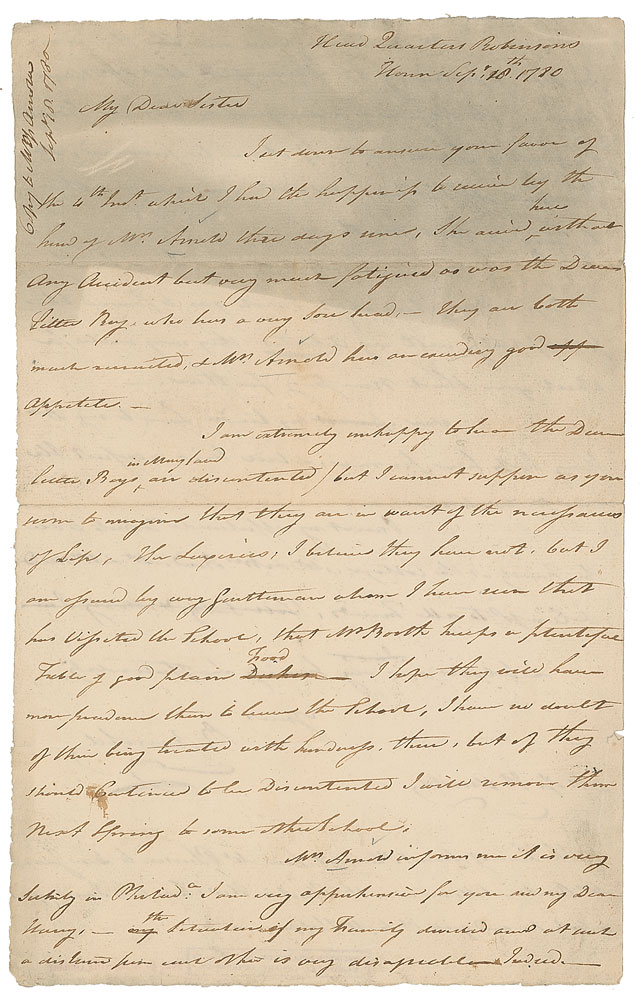 Copy to Miss Arnold
Sept. 18. 1780
Head Quarters Robinsons
House Sepr. 18th. 1780
My Dear Sister
I set down to answer your favor of
the 4th Inst. which I had the happiness to receive by the
hand of Mrs. Arnold three days since, She arrivd here without
Any Accident but very much fatigued as was the Dear
Little Boy, who has a very Sore head, — they are both
much recruited, & Mrs. Arnold has an exceeding good app
Appetite. —
I am extremely unhappy to hear the Dear
little Boys in Maryland are discontented) but I cannot suppose as you
seem to imagine that they are in want of the necessaries
of Life, the Luxeries; I believe they have not, but I
am assured by evry Gentleman whom I have seen that
has Vissited the School, that Mr. Booth keeps a plentiful
Table of good plain Food — I hope they will have
more prudence than to leave the School, I have no doubt
of their being treated with kindness, there, but if they
should Continue to be Discontented I will remove them
Next Spring to some other School.
Mrs. Arnold informs me it is very
Sickly in Philada. I am very apprehensive for you and my Dear
Harry, — my the Situation of my Family divided and at such
a distance from each other is very disagreeable Indeed. —